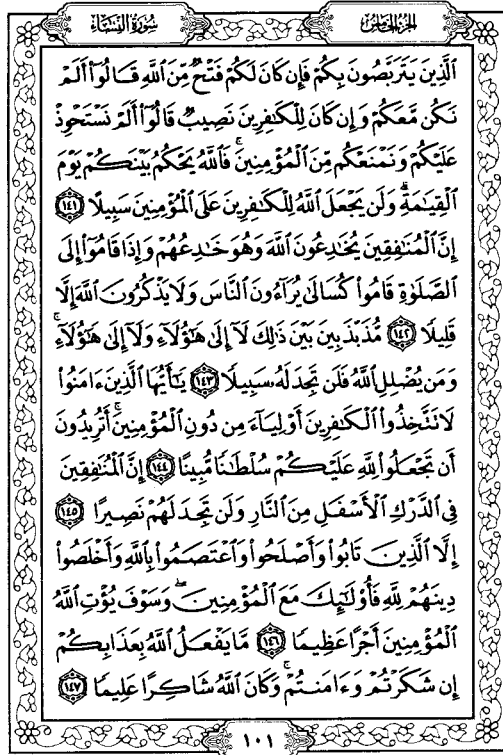 سُورَةُ النِّسَاءِ
الجُزْءُ الخَامِسُ
ٱلَّذِينَ يَتَرَبَّصُونَ بِكُمْ فَإِن كَانَ لَكُمْ فَتْحٌ مِّنَ ٱللَّهِ قَالُوٓا۟ أَلَمْ
نَكُن مَّعَكُمْ وَإِن كَانَ لِلْكَٰفِرِينَ نَصِيبٌ قَالُوٓا۟ أَلَمْ نَسْتَحْوِذْ
عَلَيْكُمْ وَنَمْنَعْكُم مِّنَ ٱلْمُؤْمِنِينَ ۚ فَٱللَّهُ يَحْكُمُ بَيْنَكُمْ يَوْمَ
ٱلْقِيَٰمَةِ ۗ وَلَن يَجْعَلَ ٱللَّهُ لِلْكَٰفِرِينَ عَلَى ٱلْمُؤْمِنِينَ سَبِيلًا ١٤١
إِنَّ ٱلْمُنَٰفِقِينَ يُخَٰدِعُونَ ٱللَّهَ وَهُوَ خَٰدِعُهُمْ وَإِذَا قَامُوٓا۟ إِلَى
ٱلصَّلَوٰةِ قَامُوا۟ كُسَالَىٰ يُرَآءُونَ ٱلنَّاسَ وَلَا يَذْكُرُونَ ٱللَّهَ إِلَّا
قَلِيلًا ١٤٢ مُّذَبْذَبِينَ بَيْنَ ذَٰلِكَ لَآ إِلَىٰ هَٰٓؤُلَآءِ وَلَآ إِلَىٰ هَٰٓؤُلَآءِ ۚ
وَمَن يُضْلِلِ ٱللَّهُ فَلَن تَجِدَ لَهُۥ سَبِيلًا ١٤٣ يَٰٓأَيُّهَا ٱلَّذِينَ ءَامَنُوا۟
لَا تَتَّخِذُوا۟ ٱلْكَٰفِرِينَ أَوْلِيَآءَ مِن دُونِ ٱلْمُؤْمِنِينَ ۚ أَتُرِيدُونَ
أَن تَجْعَلُوا۟ لِلَّهِ عَلَيْكُمْ سُلْطَٰنًا مُّبِينًا ١٤٤ إِنَّ ٱلْمُنَٰفِقِينَ
فِى ٱلدَّرْكِ ٱلْأَسْفَلِ مِنَ ٱلنَّارِ وَلَن تَجِدَ لَهُمْ نَصِيرًا ١٤٥
إِلَّا ٱلَّذِينَ تَابُوا۟ وَأَصْلَحُوا۟ وَٱعْتَصَمُوا۟ بِٱللَّهِ وَأَخْلَصُوا۟
دِينَهُمْ لِلَّهِ فَأُو۟لَٰٓئِكَ مَعَ ٱلْمُؤْمِنِينَ ۖ وَسَوْفَ يُؤْتِ ٱللَّهُ
ٱلْمُؤْمِنِينَ أَجْرًا عَظِيمًا ١٤٦ مَّا يَفْعَلُ ٱللَّهُ بِعَذَابِكُمْ
إِن شَكَرْتُمْ وَءَامَنتُمْ ۚ وَكَانَ ٱللَّهُ شَاكِرًا عَلِيمًا ١٤٧
١٠١